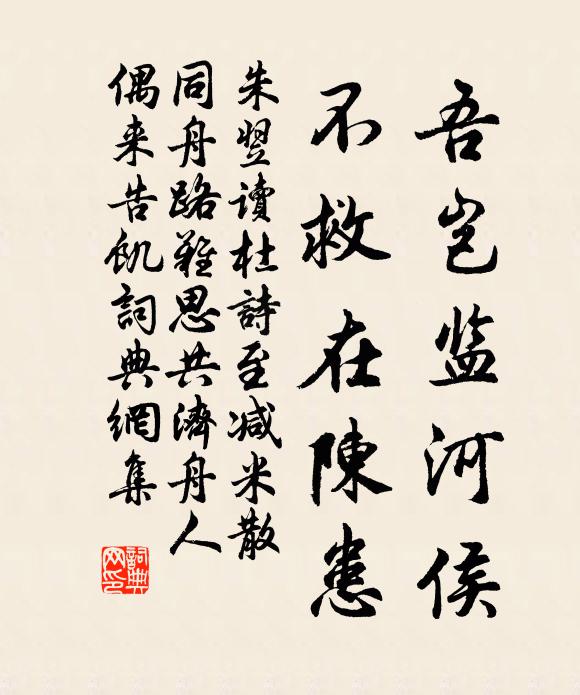 吾岂监河侯
不救在陳恙
朱翌讀杜詩至减米散
同舟路難思共濟舟人
偶来告飢詞典網集
詞典网印